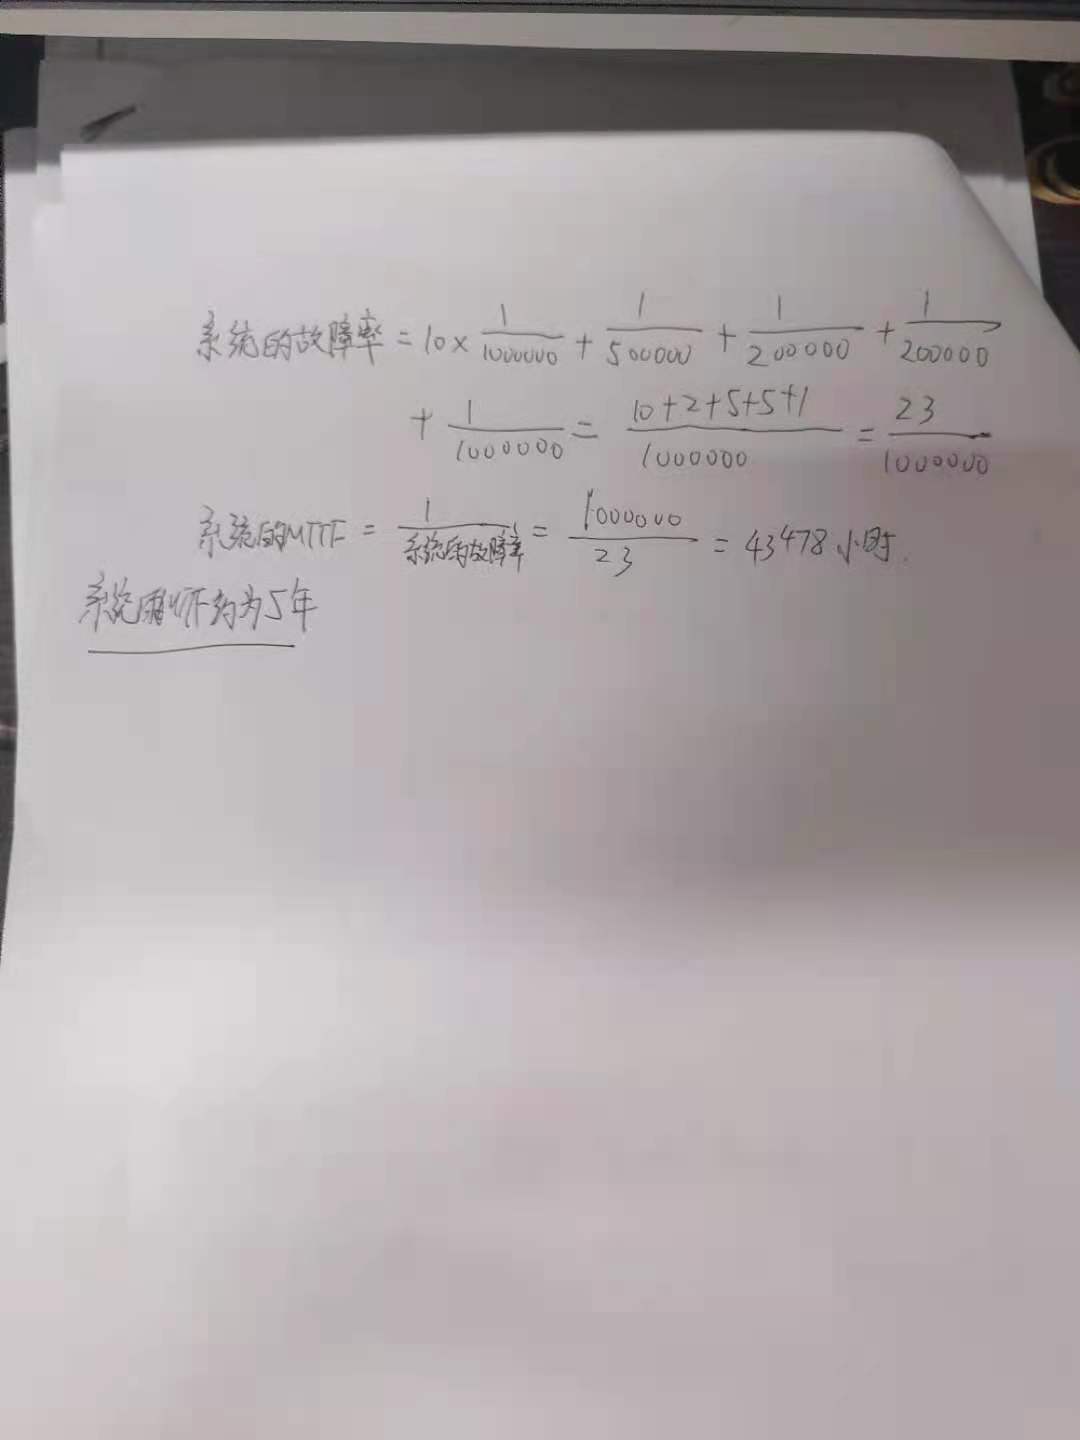 系统的故障率 = 10 × 1/1000000 + 1/500000 + 1/200000 + 1/200000
+ 1/1000000 = 10+2+5+5+1/1000000 = 23/1000000
系统的MTTF = 1/系统的故障率 = 1000000/23 = 43478 小时.
系统 约为5年